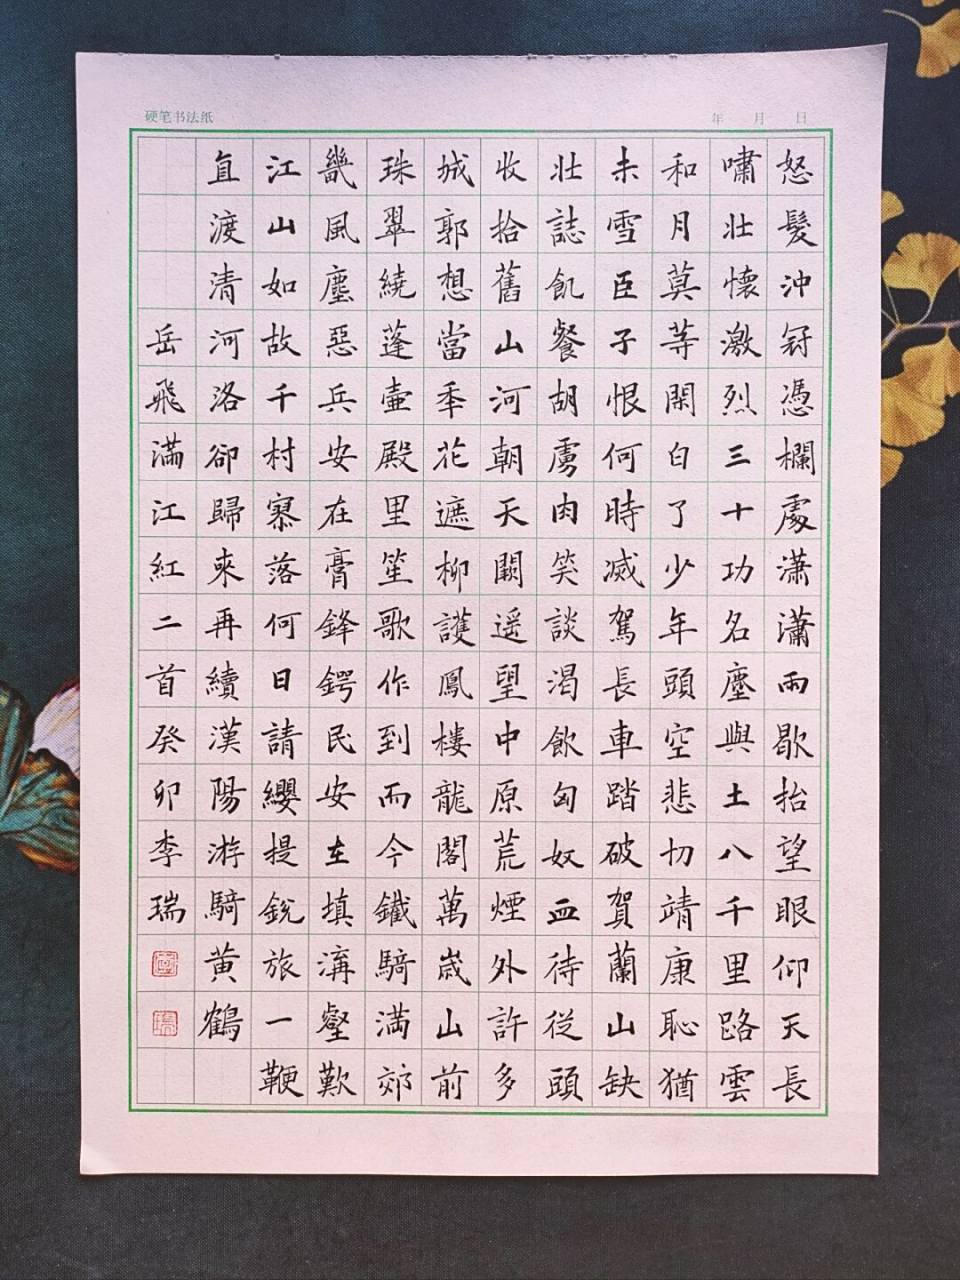 硬笔书法纸
年 月 日
怒髮沖冠憑欄處潇瀟雨歇抬望眼仰天長
嘯壯懷激烈三十功名塵與土八千里路雲
和月莫等閑白了少年頭空悲切靖康恥猶
未雪臣子恨何時滅駕長車踏破賀蘭山缺
壯誌飢餐胡虜肉笑談渴飲匈奴血待從頭
收拾舊山河朝天闕遥望中原荒煙外許多
城郭想當年花遮柳護鳳樓龍閣萬歲山前
珠翠繞蓬壷殿里笙歌作到而今鐵騎満郊
畿風塵惡兵安在膏鋒鍔民安在填溝壑歎
江山如故千村寥落何日請纓提銳旅一鞭
直渡清河洛卻歸來再續漢陽游騎黄鶴
岳飛滿江紅二首癸卯李瑞